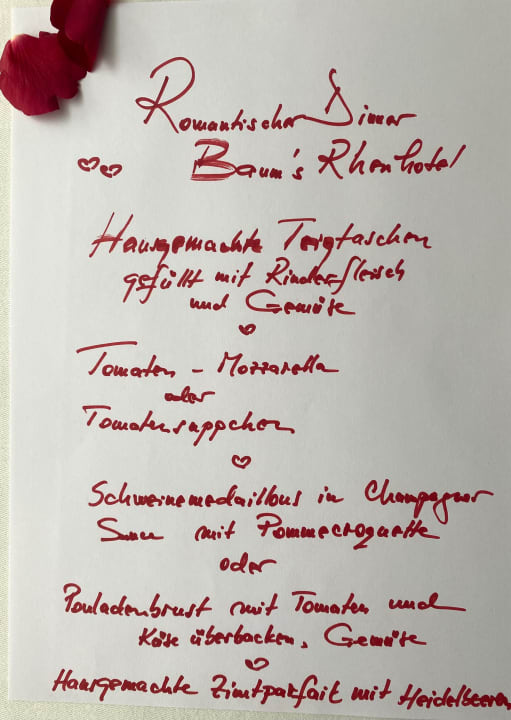 Romantischer Dinner
Baum's Rhenhotel
Hausgemachte Teigtaschen
gefüllt mit Rinderfleisch
und Gemüse
Tomaten - Mozzarella
oder
Tomatensuppchen
Schweinemedaillons in Champagner
mit Pommecroquette
oder
Pouladenbrust mit Tomaten und
Käse überbacken, Gemüse
Hausgemachte Zimtparfait mit Heidelbeeren